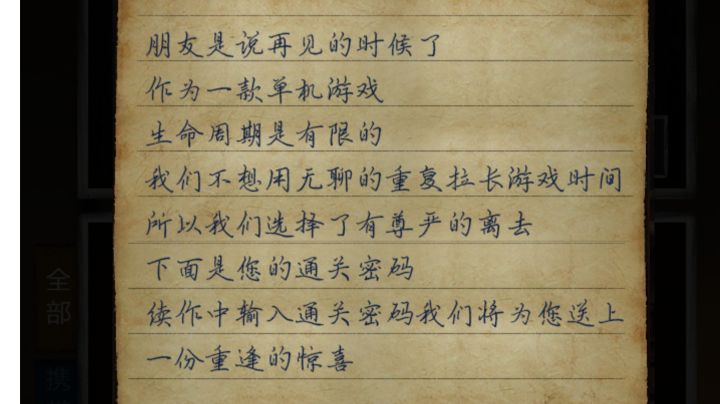 朋友是说再见的时候了
作为一款单机游戏
生命周期是有限的
我们不想用无聊的重复拉长游戏时间
所以我们选择了有尊严的离去
下面是您的通关密码
续作中输入通关密码我们将为您送上
一份重逢的惊喜
全部
携